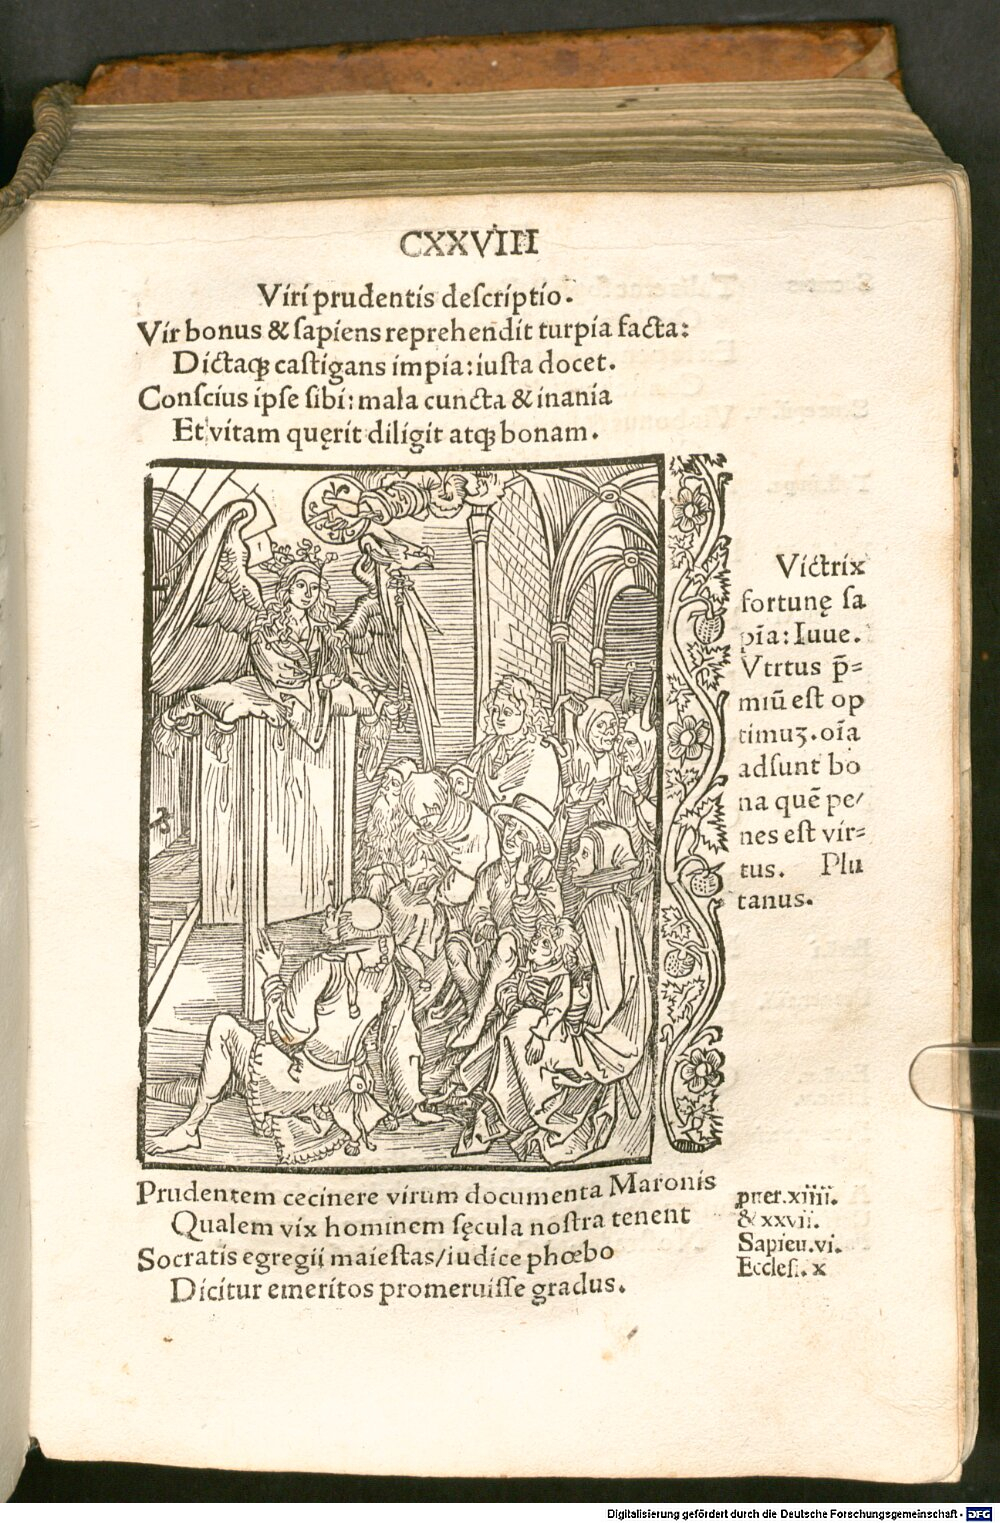 CXXVIII
Viri prudentis descriptio.
Vir bonus & sapiens reprehendit turpia facta:
Dictaqꝫ castigans impia: iusta docet.
Conscius ipse sibi: mala cuncta & inania
Et vitam quęrit diligit atqꝫ bonam.
Victrix
fortunę sa
pīa: Iuue.
Vtrtus p̄=
miū est op
timuꝫ. oīa
adsunt bo
na quē pe/
nes est vir=
tus. Plu
tanus.
Prudentem cecinere virum documenta Maronis
Qualem vix hominem sęcula nostra tenent
Socratis egregii maiestas/iudice phœbo
Dicitur emeritos promeruisse gradus.
puer. xiiii.
& xxvii.
Sapieu. vi.
Eccles. x
Digitalisierung gefördert durch die Deutsche Forschungsgemeinschaft - DFG